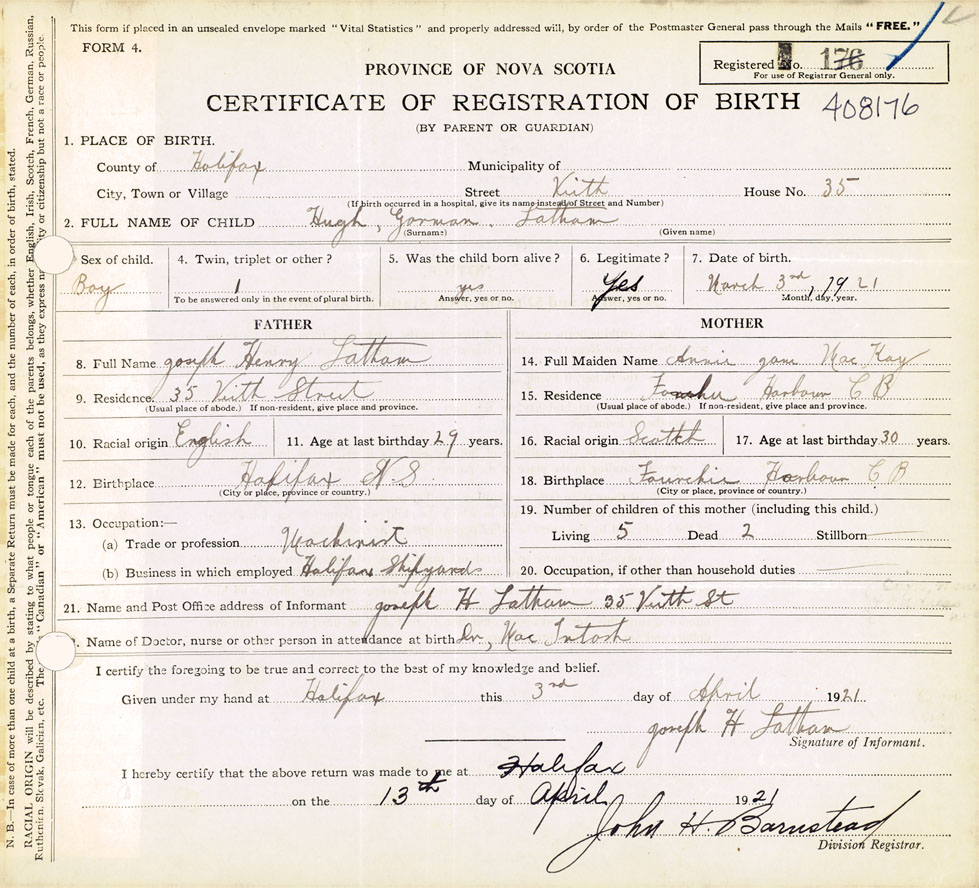 This form if placed in an unsealed envelope marked "Vital Statistics" and properly addressed will, by order of the Postmaster General pass through the Mails "FREE."
FORM 4.
Registered No. 176
For use of Registrar General only.
PROVINCE OF NOVA SCOTIA
CERTIFICATE OF REGISTRATION OF BIRTH 408176
(BY PARENT OR GUARDIAN)
1. PLACE OF BIRTH.
County of Halifax Municipality of
City, Town or Village Street Veith House No. 35
(If birth occurred in a hospital, give its name instead of Street and Number)
2. FULL NAME OF CHILD Hugh, Gorman. Latham
(Surname) (Given name)
Sex of child. 4. Twin, triplet or other? 5. Was the child born alive? 6. Legitimate? 7. Date of birth.
Boy 1 yes Yes March 3rd, 1921
To be answered only in the event of plural birth. Answer, yes or no. Answer, yes or no. Month, day, year.
FATHER
8. Full Name joseph Henry Latham
9. Residence. 35 Veith Street
(Usual place of abode.) If non-resident, give place and province.
10. Racial origin English 11. Age at last birthday 29 years.
12. Birthplace Halifax N.S
(City or place, province or country.)
13. Occupation:—
(a) Trade or profession Machinist
(b) Business in which employed Halifax Shipyards
MOTHER
14. Full Maiden Name Annie jane Mac Kay
15. Residence Harbour C B
(Usual place of abode.) If non-resident, give place and province.
16. Racial origin Scotch 17. Age at last birthday 30 years.
18. Birthplace Fourchie Harbour C B
(City or place, province or country.)
19. Number of children of this mother (including this child.)
Living 5 Dead 2 Stillborn
20. Occupation, if other than household duties
21. Name and Post Office address of Informant joseph H Latham 35 Veith St
Name of Doctor, nurse or other person in attendance at birth Dr, Mac Intosh
I certify the foregoing to be true and correct to the best of my knowledge and belief.
Given under my hand at Halifax this 3rd day of April 1921.
joseph H Latham
Signature of Informant.
I hereby certify that the above return was made to me at Halifax
on the 13th day of April 1921
John H. Barnstead
Division Registrar.
N. B.—In case of more than one child at a birth, a Separate Return must be made for each, and the number of each, in order of birth, stated.
RACIAL ORIGIN will be described by stating to what people or tongue each of the parents belongs, whether English, Irish, Scotch, French, German, Russian,
Ruthenian, Slovak, Galician, etc. The "Canadian" or "American" must not be used, as they express or citizenship but not a race or people.